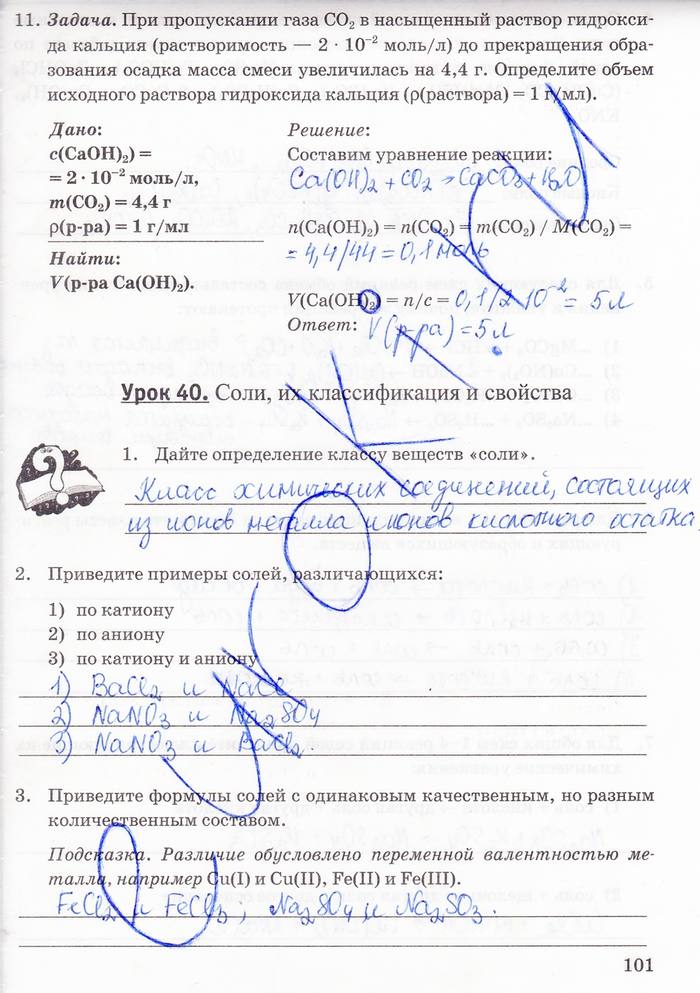 11. Задача. При пропускании газа CO₂ в насыщенный раствор гидрокси-
да кальция (растворимость — 2 · 10⁻² моль/л) до прекращения обра-
зования осадка масса смеси увеличилась на 4,4 г. Определите объем
исходного раствора гидроксида кальция (ρ(раствора) = 1 г/мл).
Дано:
c(Ca(OH)₂) =
= 2 · 10⁻² моль/л,
m(CO₂) = 4,4 г
ρ(р-ра) = 1 г/мл
Найти:
V(р-ра Ca(OH)₂).
Решение:
Составим уравнение реакции:
Ca(OH)₂ + CO₂ → CaCO₃ + H₂O
n(Ca(OH)₂) = n(CO₂) = m(CO₂) / M(CO₂) =
= 4,4/44 = 0,1 моль
V(Ca(OH)₂) = n/c = 0,1/2·10⁻² = 5 л
Ответ: V(р-ра) = 5 л.
Урок 40. Соли, их классификация и свойства
1. Дайте определение классу веществ «соли».
Класс химических соединений, состоящих
из ионов металла и ионов кислотного остатка,
2. Приведите примеры солей, различающихся:
1) по катиону
2) по аниону
3) по катиону и аниону
1) BaCl₂ и NaCl
2) NaNO₃ и Na₂SO₄
3) NaNO₃ и BaCl₂
3. Приведите формулы солей с одинаковым качественным, но разным
количественным составом.
Подсказка. Различие обусловлено переменной валентностью ме-
талла, например Cu(I) и Cu(II), Fe(II) и Fe(III).
FeCl₂ и FeCl₃, Na₂SO₄ и Na₂SO₃.
101